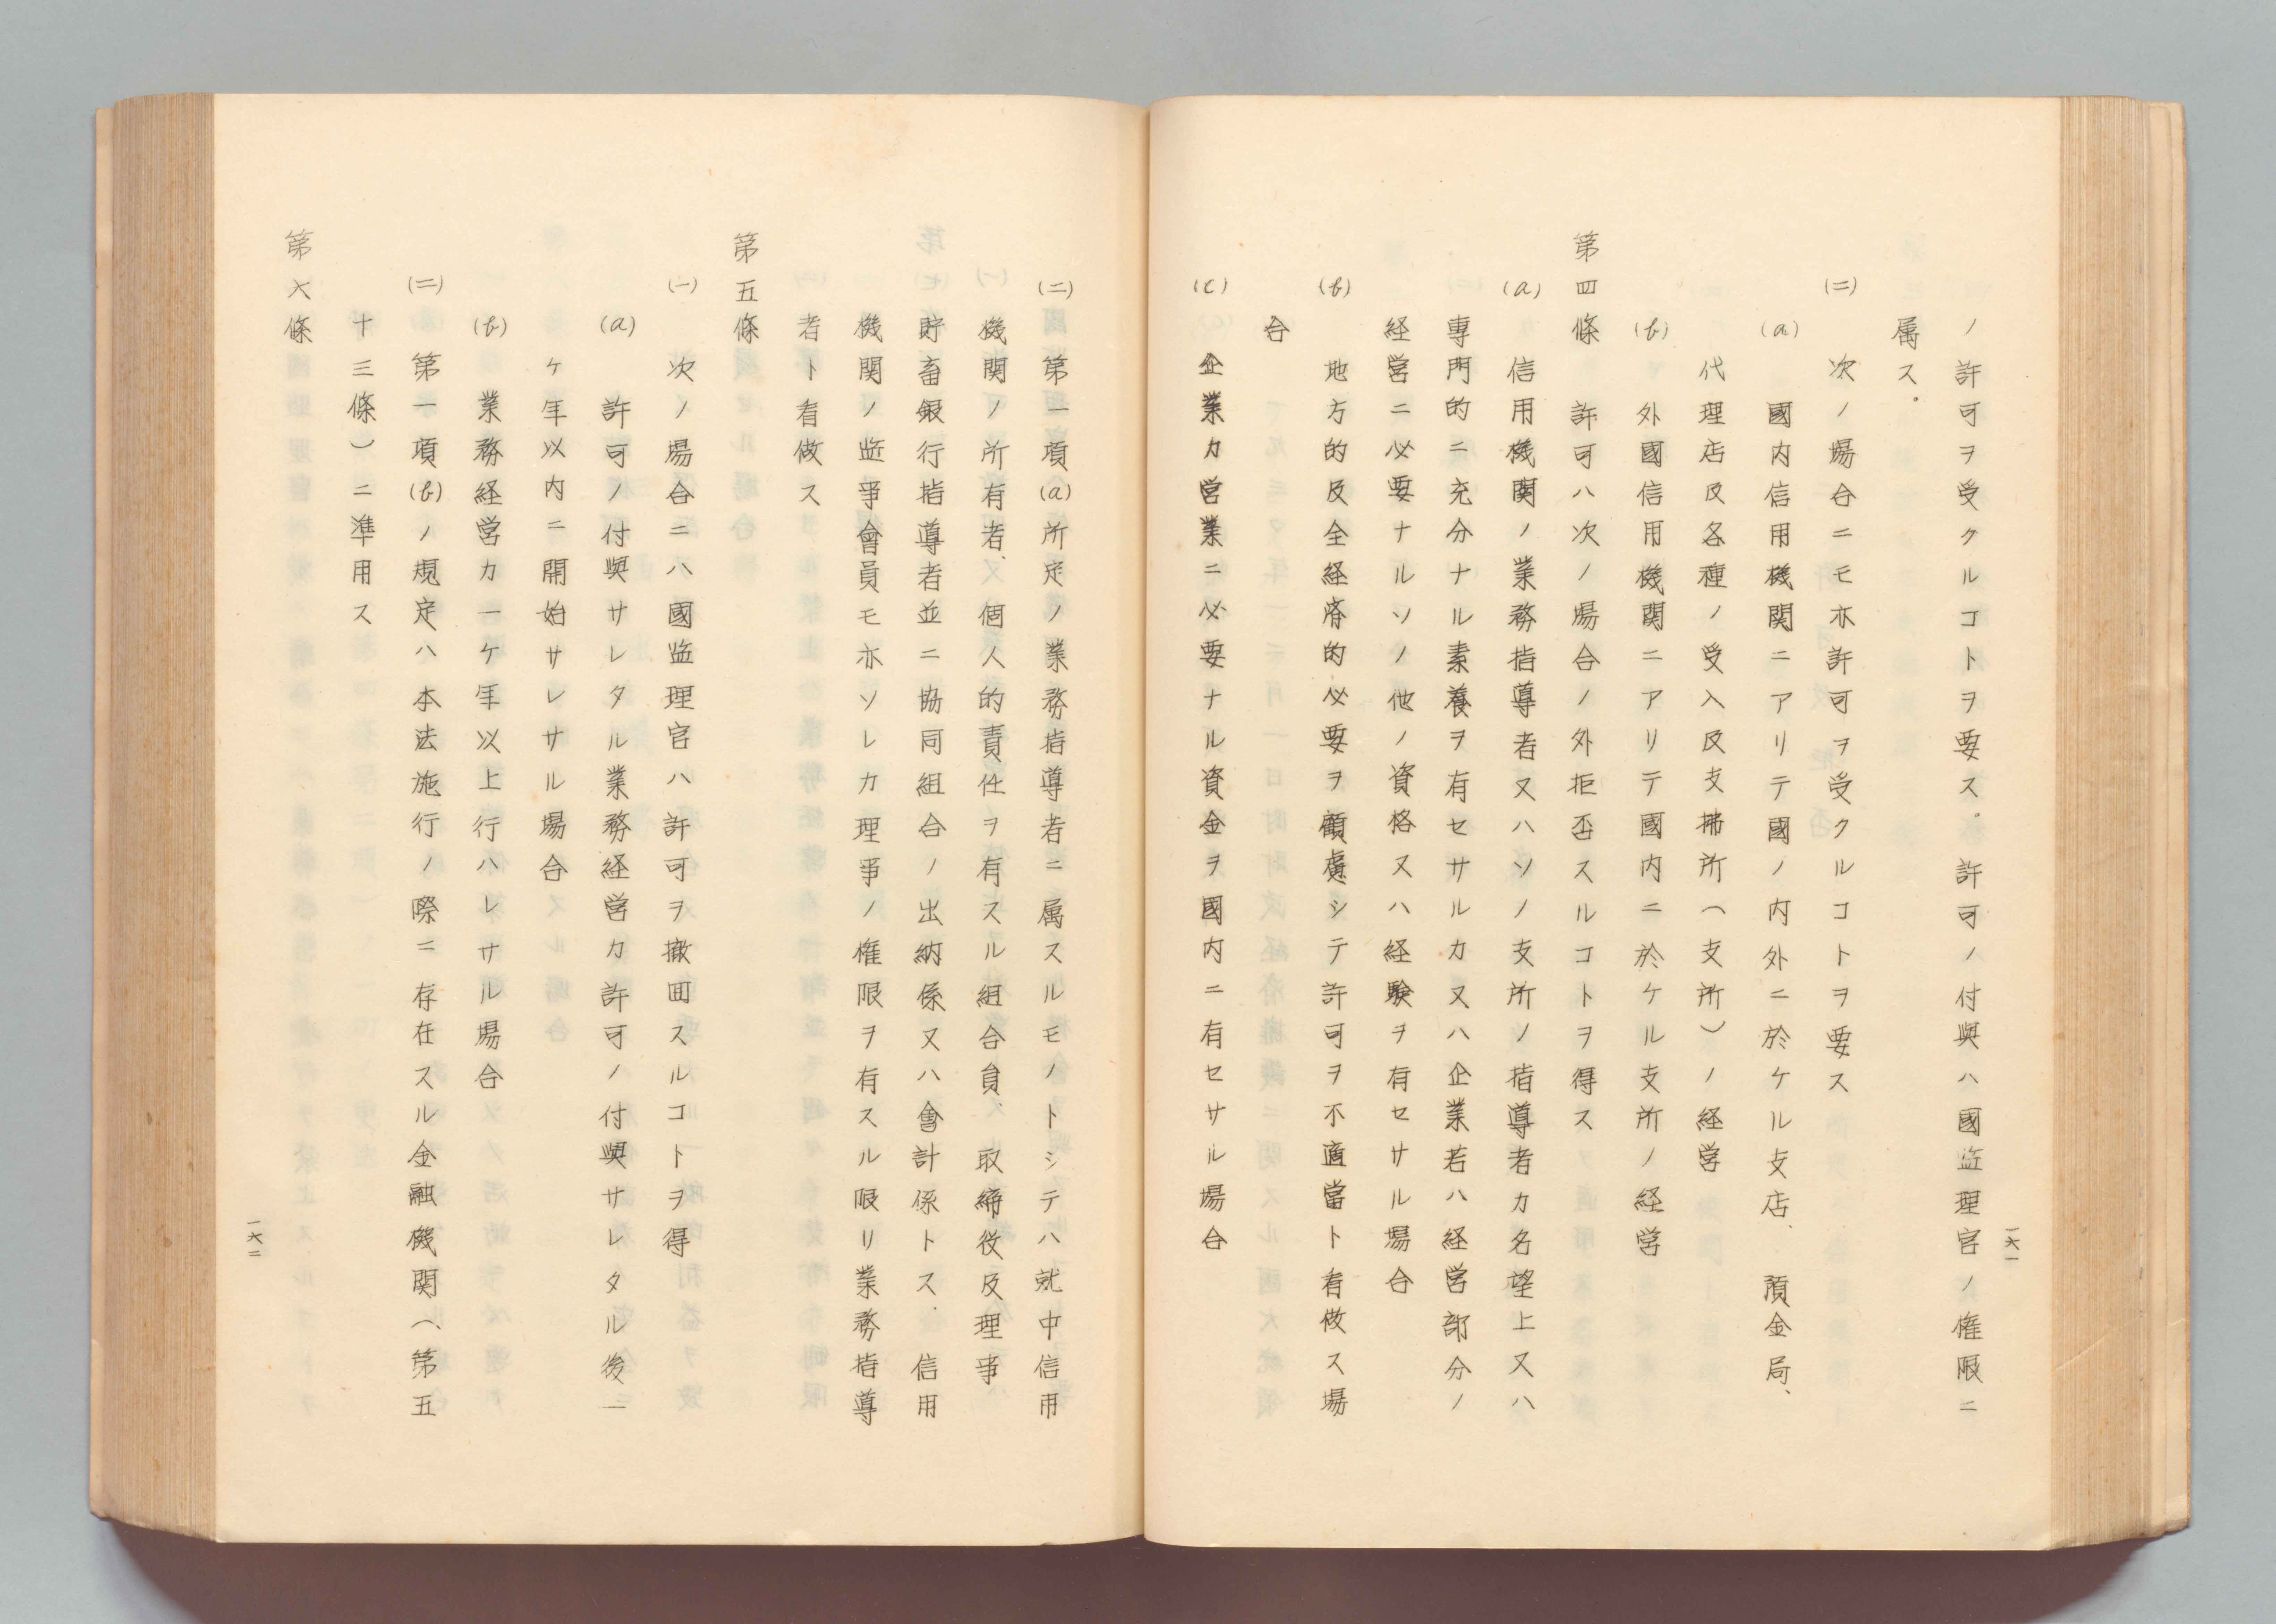 ノ許可ヲ受クルコトヲ要ス。許可ノ付與ハ國監理官ノ権限ニ
属ス。
(二) 次ノ場合ニモ亦許可ヲ受クルコトヲ要ス
(a) 國内信用機関ニアリテ國ノ内外ニ於ケル支店、預金局、
代理店及各種ノ受入及支拂所(支所)ノ経営
(b) 外國信用機関ニアリテ國内ニ於ケル支所ノ経営
第四條 許可ハ次ノ場合ノ外拒否スルコトヲ得ス
(a) 信用機関ノ業務指導者又ハソノ支所ノ指導者カ名望上又ハ
專門的ニ充分ナル素養ヲ有セサルカ又ハ企業若ハ経営部分ノ
経営ニ必要ナルソノ他ノ資格又ハ経験ヲ有セサル場合
(b) 地方的及全経済的必要ヲ顧慮シテ許可ヲ不適當ト看做ス場
合
(c) 企業カ営業ニ必要ナル資金ヲ國内ニ有セサル場合
一六一
(二) 第一項(a)所定ノ業務指導者ニ属スルモノトシテハ就中信用
機関ノ所有者、個人的責任ヲ有スル組合員、取締役及理事
貯畜銀行指導者並ニ協同組合ノ出納係又ハ會計係トス、信用
機関ノ監事會員モ亦ソレカ理事ノ権限ヲ有スル限リ業務指導
者ト看做ス
第五條
(一) 次ノ場合ニハ國監理官ハ許可ヲ撤囬スルコトヲ得
(a) 許可ノ付與サレタル業務経営カ許可ノ付與サレタル後一
ケ年以内ニ開始サレサル場合
(b) 業務経営カ一ケ年以上行ハレサル場合
(二) 第一項(b)ノ規定ハ本法施行ノ際ニ存在スル金融機関(第五
十三條)ニ準用ス
第六條
一六二